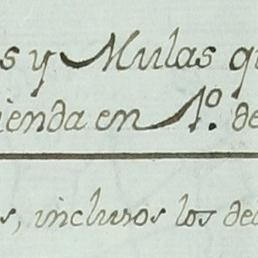 s y Mulas q
ienda en 1º. de
s, inclusos los de